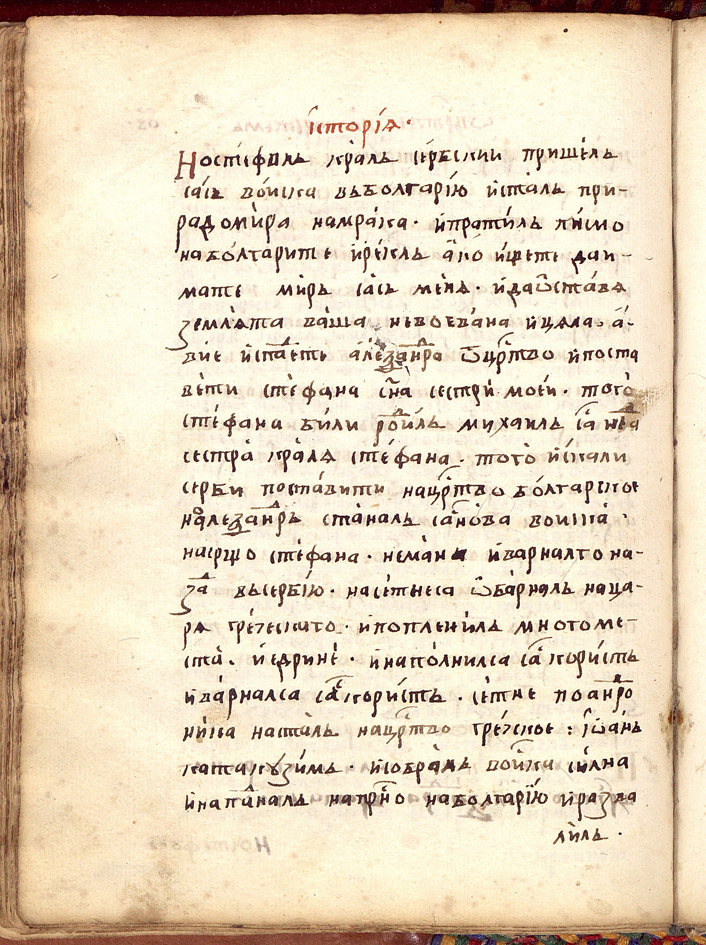 їсторїѧ·
Но стефань краль сербскии пришель
сась воиска въ болгарїю и сталь при-
радомира на мрака · и пратиль писмо
на болгарите и рекль ако ищете да и-
мате мирь сась меня · и да ѿставѧ
землѧта ваша невоевана и цяла · а-
бїе испѫдете алеѯандра ѿ црⷭтво и поста
вети стефана сн҃а сестри моеи · того
стефана били родиль михаиль са нѣгова
сестра краля стефана · того искали
серби поставити на црⷭтво болгарское
но алеѯандрь станаль са нова воиска ·
насрѣщо стефана · неманѧ и варналго на-
задⷣ въ сербїю · на сетне са ѿбарналь на ца-
ря греческаго · и попленилъ много ме-
ста · и едрине · и наполнилса са користь
и варналса са користь · сетне по андро
ника насталь на црⷭтво греческое : їѡань
катакѹзимь · и собраль воиска силна
и нападналь напрасно на болгарїю и разва
лиль ·